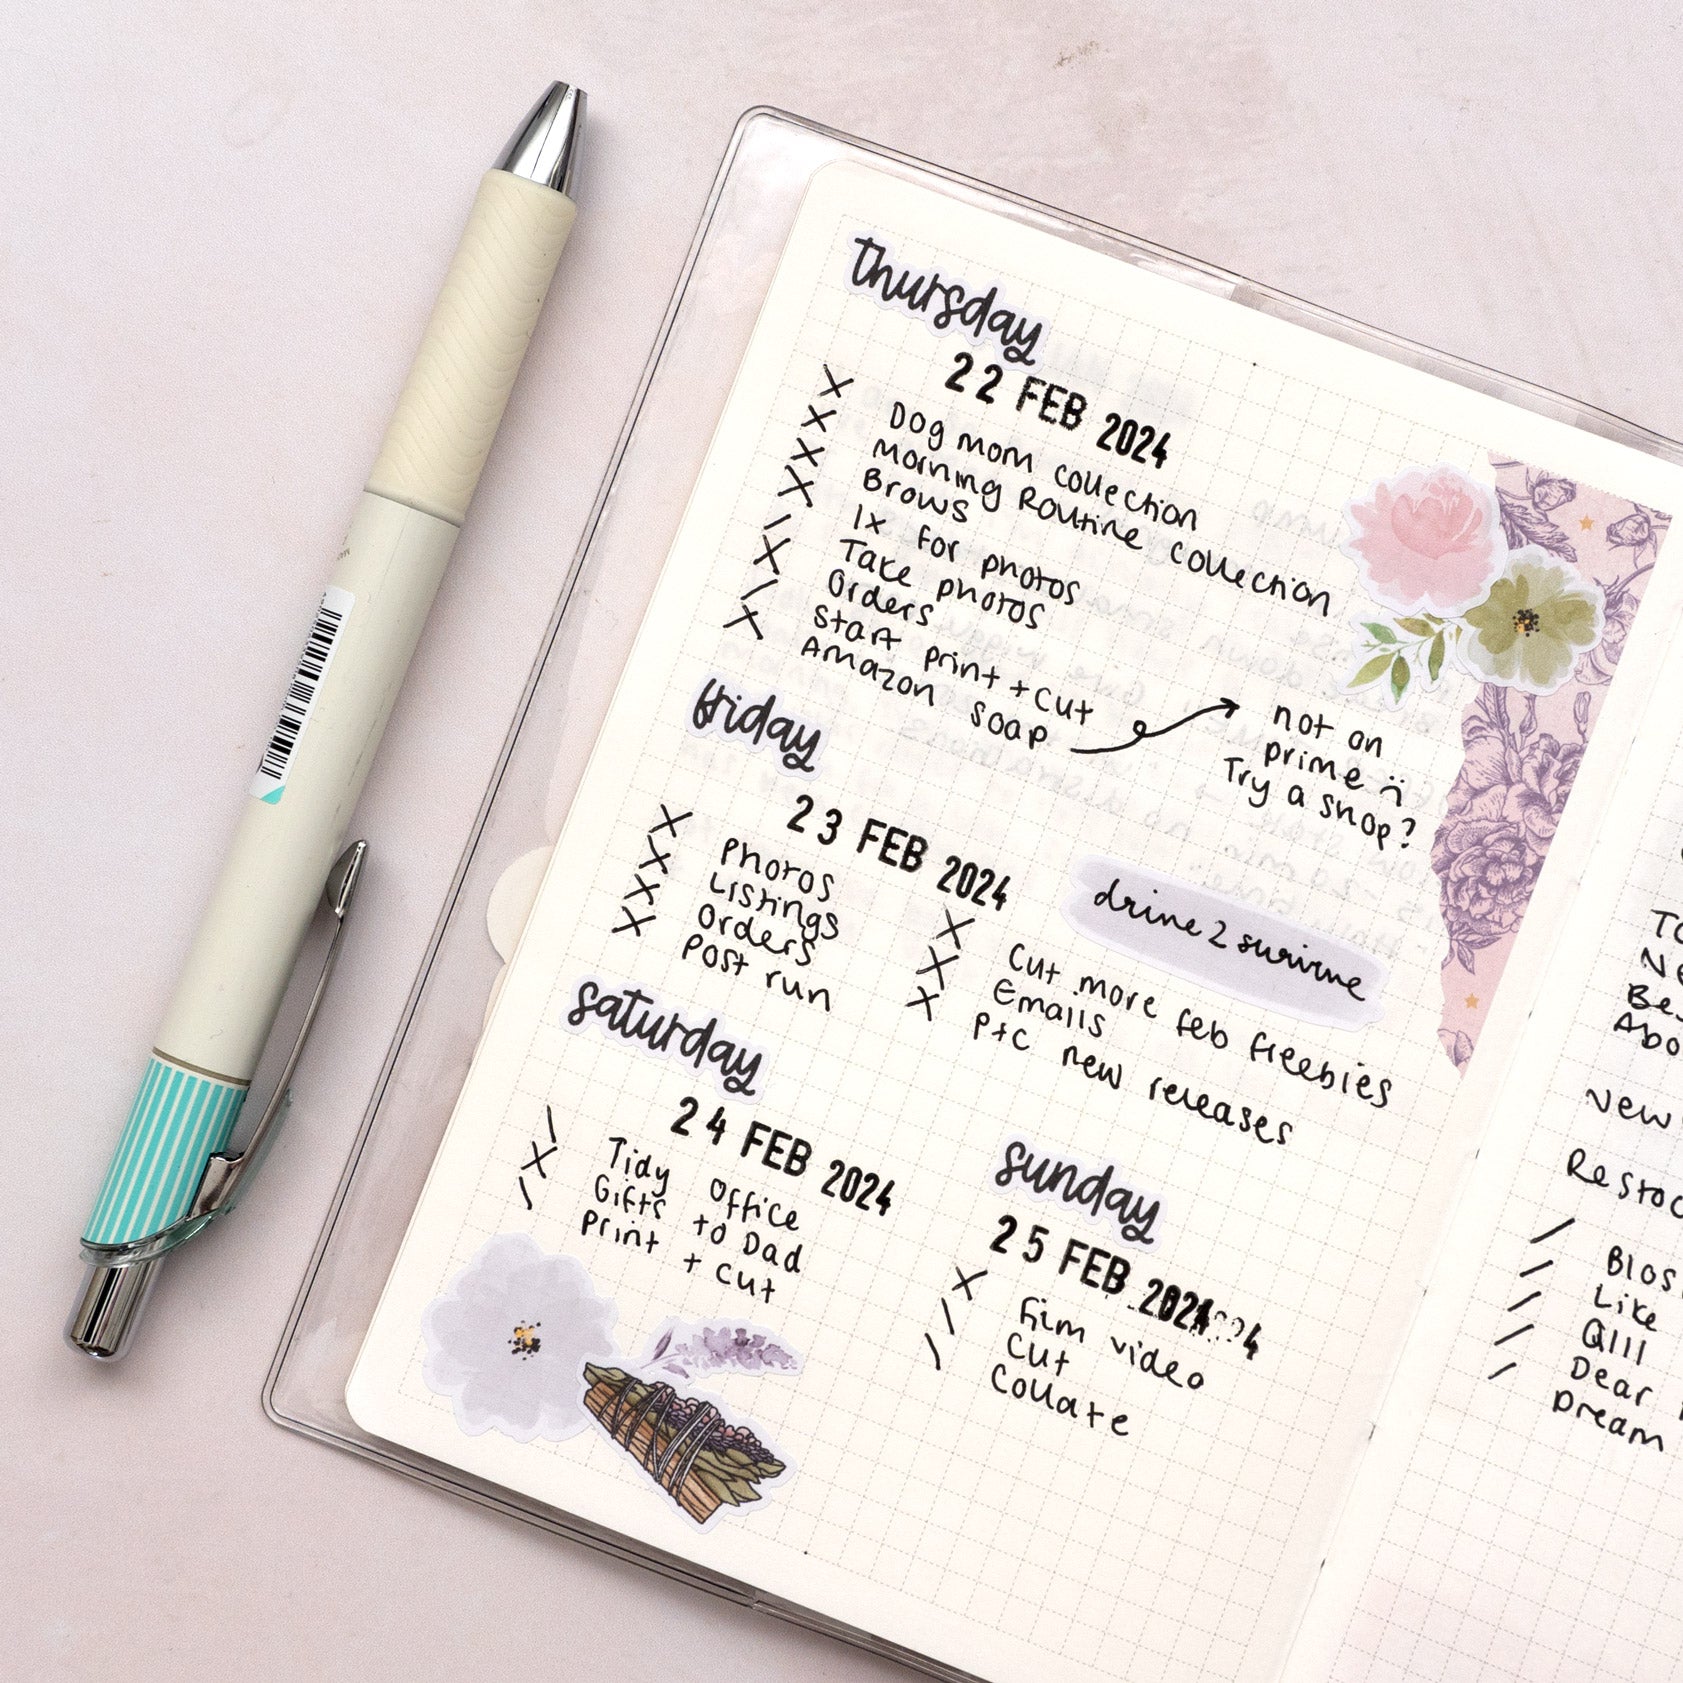 thursday
22 FEB 2024
X Dog mom collection
X Morning Routine collection
X Brows
X 1x for photos
/ Take photos
X Orders
/ Start print + cut
X Amazon soap
not on
prime :(
Try a shop?
friday
23 FEB 2024
X Photos
X Listings
X Orders
X Post run
X Cut more feb freebies
X Emails
X PTC new releases
saturday
24 FEB 2024
\ Tidy office
X Gifts to Dad
\ Print + cut
sunday
25 FEB 2024
X Film video
\ Cut
\ Collate
New
/ Like
/ Dear
/ Dream